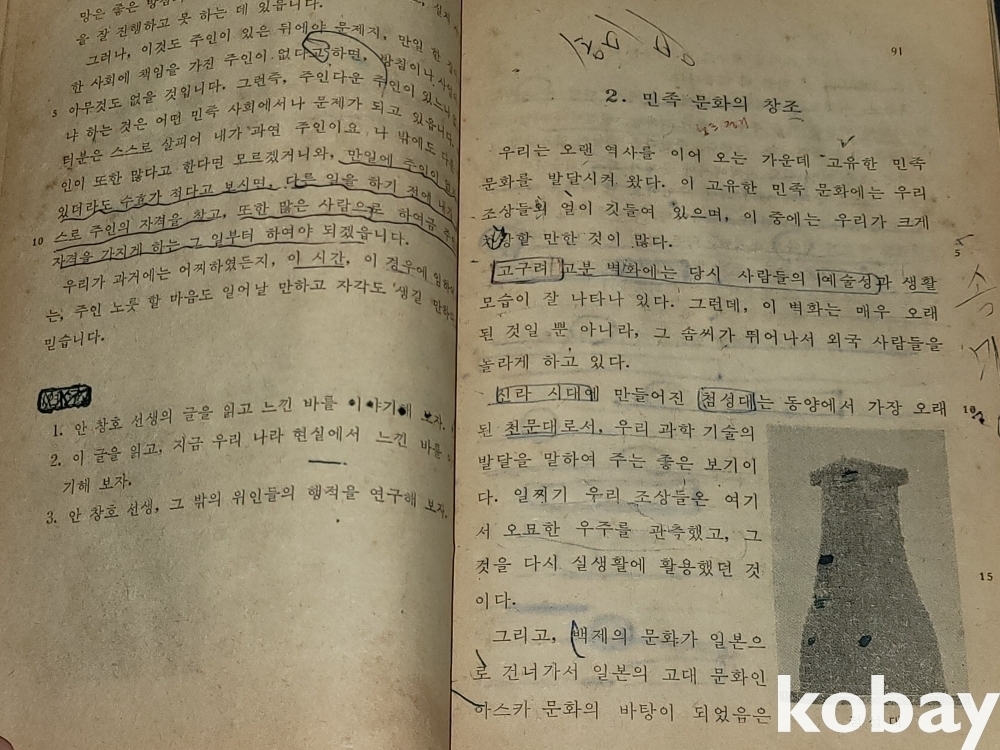 망은 좋은
을 잘 진행하고 못 하는 데 있읍니다.
그러나, 이것도 주인이 있은 뒤에야 문제지, 만일 한
한 사회에 책임을 가진 주인이 없다고 하면, 방침이나
5 아무것도 없을 것입니다. 그런즉, 주인다운 주인이 있느냐
냐 하는 것은 어떤 민족 사회에서나 문제가 되고 있읍니다.
러분은 스스로 살피어 내가 과연 주인이요, 나 밖에도
인이 또한 많다고 한다면 모르겠거니와, 만일에 주인이
있더라도 수효가 적다고 보시면, 다른 일을 하기 전에 내가
10 스로 주인의 자격을 찾고, 또한 많은 사람으로 하여금
자격을 가지게 하는 그 일부터 하여야 되겠읍니다.
우리가 과거에는 어찌하였든지, 이 시간, 이 경우에
는, 주인 노릇 할 마음도 일어날 만하고 자각도 생길
믿습니다.
1. 안 창호 선생의 글을 읽고 느낀 바를 이야기해 보자.
2. 이 글을 읽고, 지금 우리 나라 현실에서 느낀 바를
기해 보자.
3. 안 창호 선생, 그 밖의 위인들의 행적을 연구해 보자.
91
2. 민족 문화의 창조
우리는 오랜 역사를 이어 오는 가운데 고유한 민족
문화를 발달시켜 왔다. 이 고유한 민족 문화에는 우리
조상들의 얼이 깃들여 있으며, 이 중에는 우리가 크게
자랑할 만한 것이 많다.
5
고구려 고분 벽화에는 당시 사람들의 예술성과 생활
모습이 잘 나타나 있다. 그런데, 이 벽화는 매우 오래
된 것일 뿐 아니라, 그 솜씨가 뛰어나서 외국 사람들을
놀라게 하고 있다.
신라 시대에 만들어진 첨성대는 동양에서 가장 오래 10
된 천문대로서, 우리 과학 기술의
발달을 말하여 주는 좋은 보기이
다. 일찌기 우리 조상들은 여기
서 오묘한 우주를 관측했고, 그
것을 다시 실생활에 활용했던 것
15
이다.
그리고, 백제의 문화가 일본으
로 건너가서 일본의 고대 문화인
아스카 문화의 바탕이 되었음은
kobay